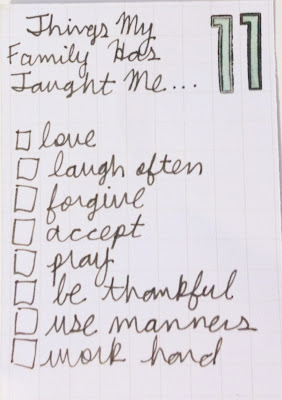 Things My
Family Has
Taught Me...
11
love
laugh often
forgive
accept
pray
be thankful
use manners
work hard